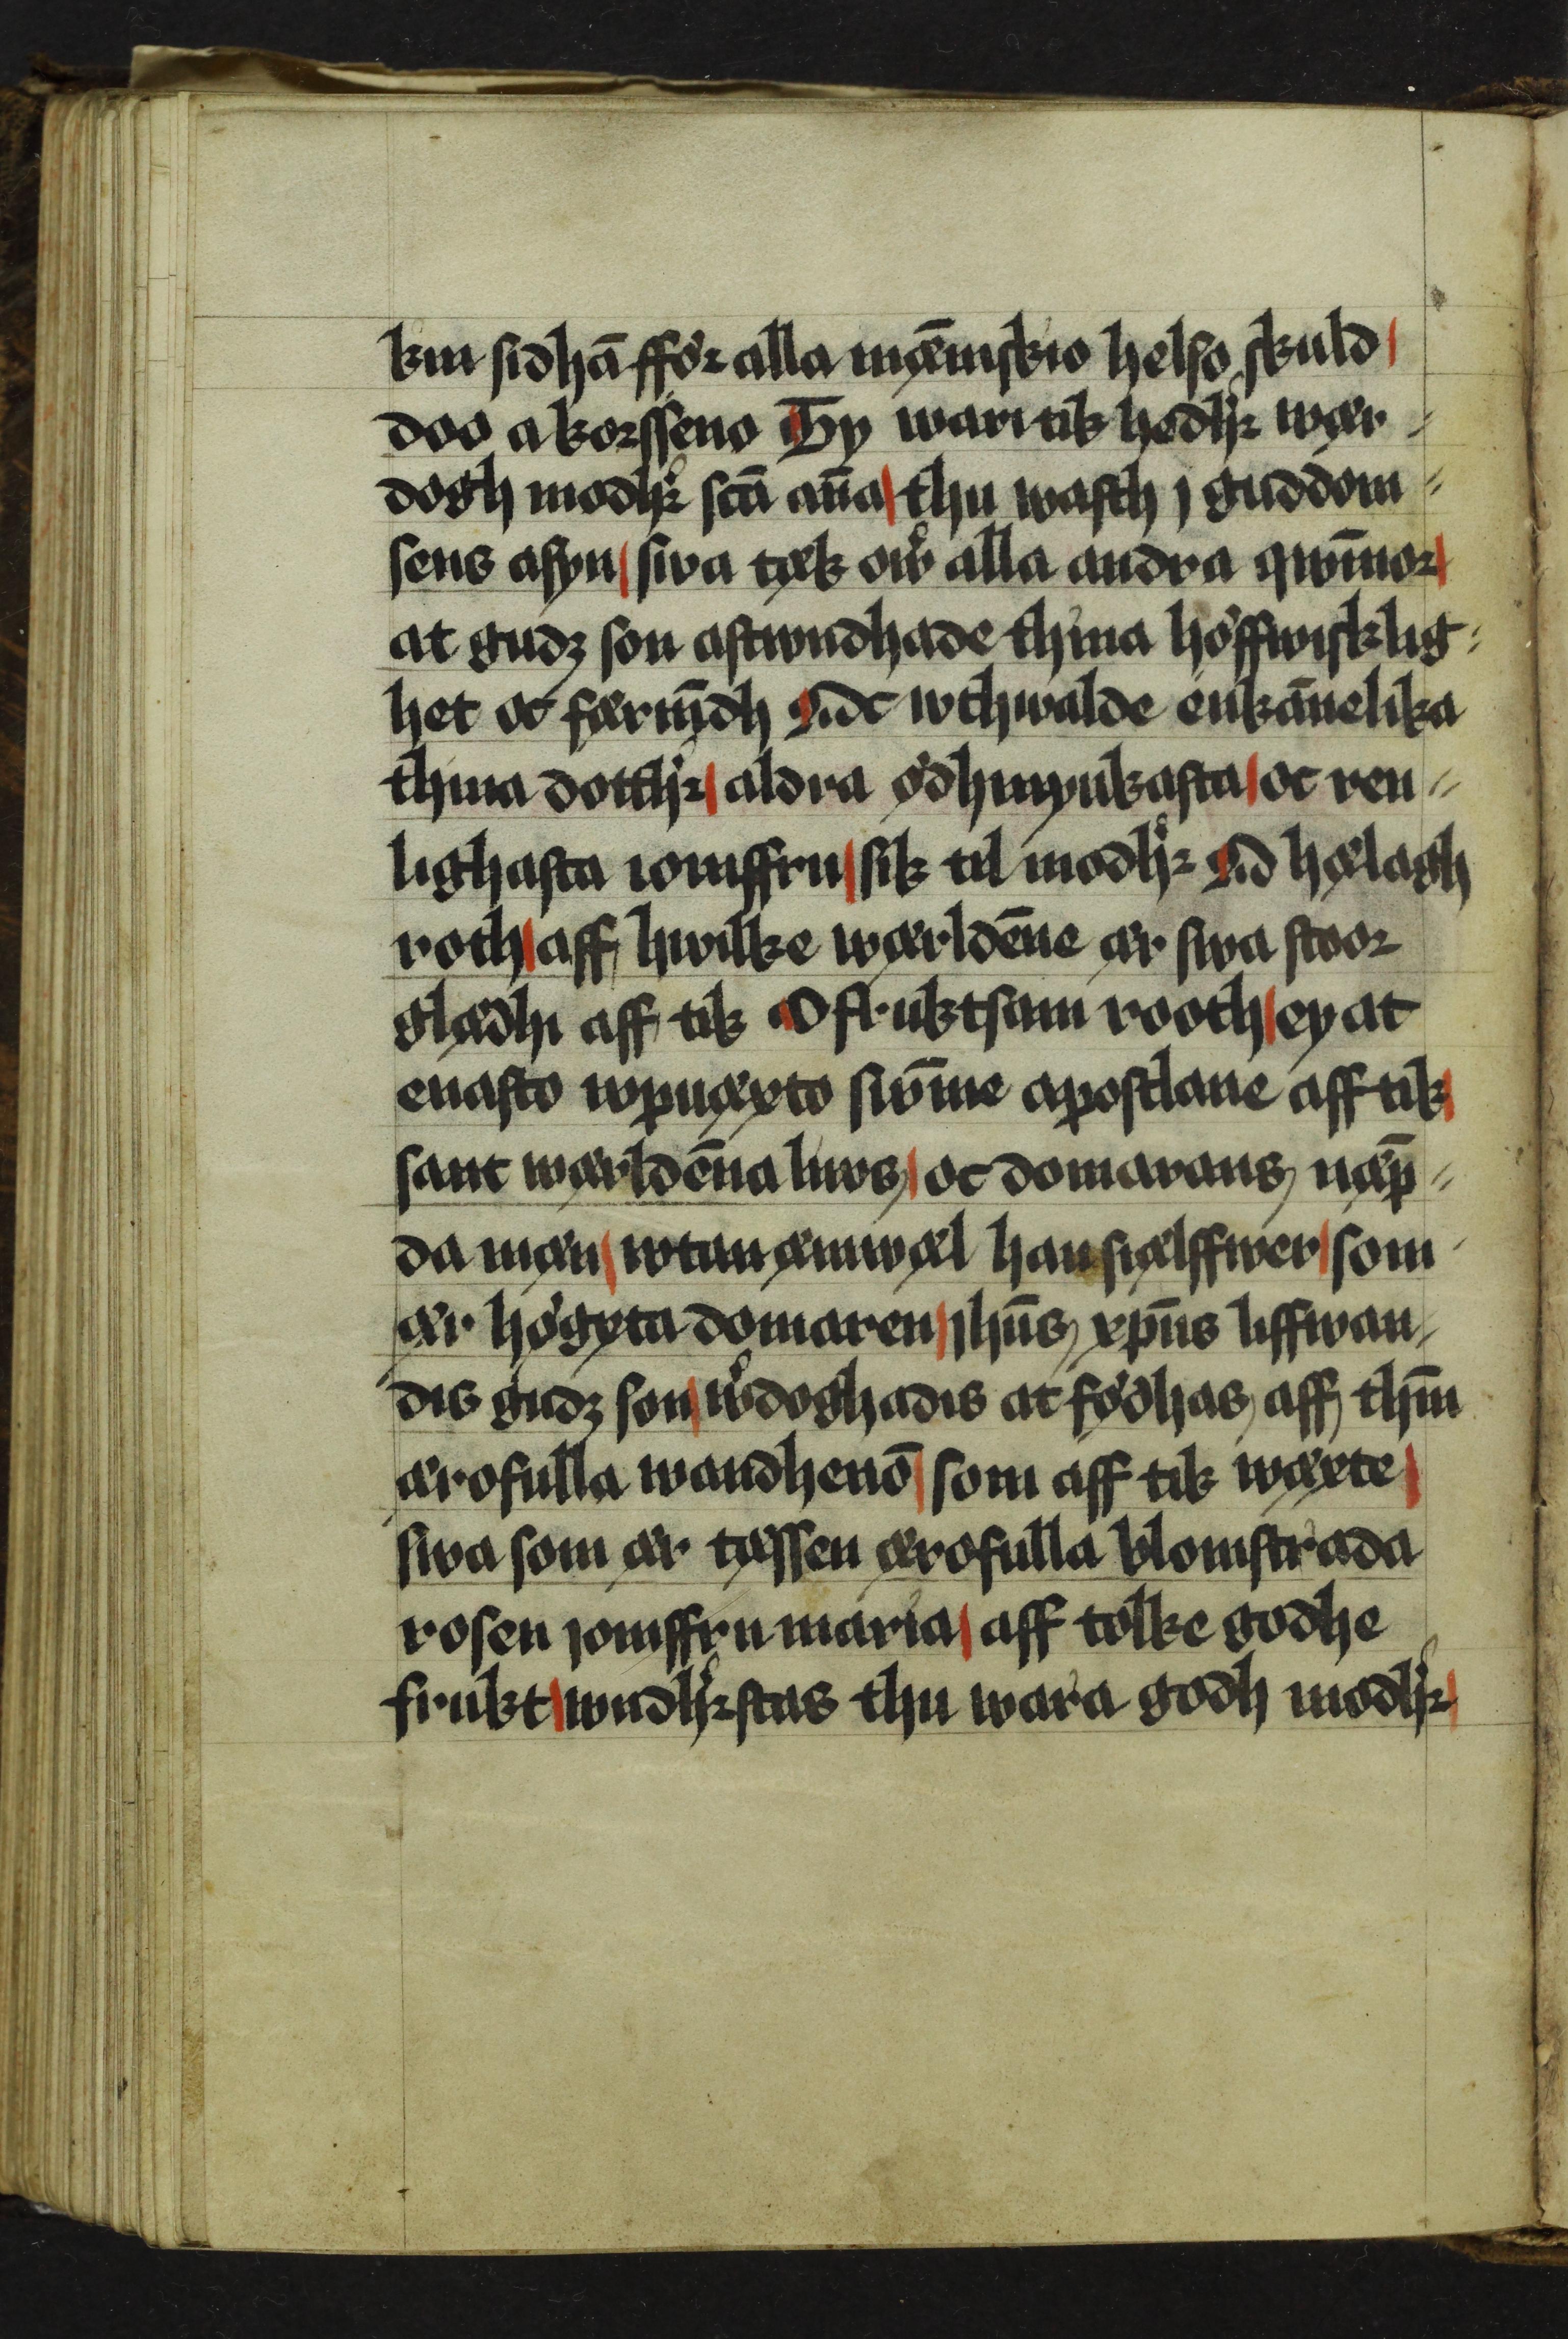 kin sidhā ffor alla mæ̅niskio helso skuld
doo a korsseno Thy wari tik hedhr wær-
dogh modhr sctā an̄a thu wasth j guddom-
sens asyn swa tæk ow̉ alla andra qwīnor
at gudz son astwndhade thina höffwisklig-
het oc færnȳdh Oc wthwalde enkānelika
thina dotthr aldra ødhmyukasta oc ren-
lighasta iomffru sik til modhr O hælagh
roth aff hwilke wærldēne ær swa stoor
glædhi aff tik O fruktsam rooth ey at
enasto wpwæxto siw̄me apostlane aff tik
sant wærldēna liws oc domarans næp̄-
da mæn wtan æmwæl han siælffwer som
ær högxta domaren jhūs xp̄us liffwan-
dis gudz son w̉doghadis at fødhas aff thm̄
ærofulla wandhenō som aff tik wæxte
swa som ær tæssen ærofulla blomstrada
rosen jomffru maria aff tolke godhe
frukt wndhrstas thu wara godh modhr